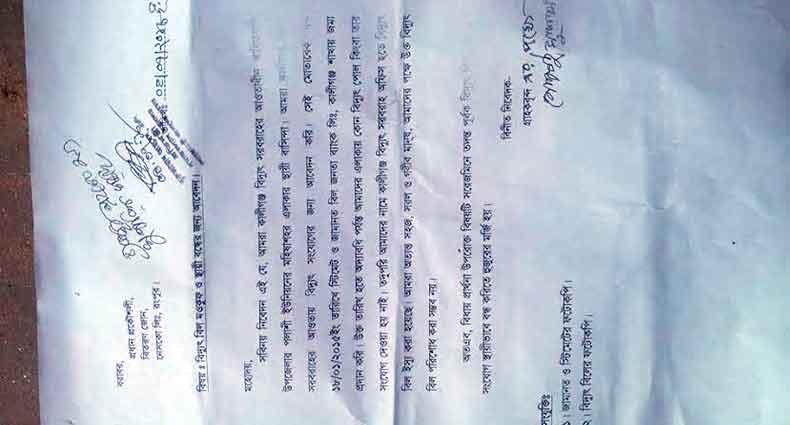 বরাবর,
প্রধান প্রকৌশলী,
বিতরণ জোন,
নেসকো লিঃ, রংপুর।
বিষয় : বিদ্যুৎ বিল মওকুফ ও স্থায়ী বন্ধের জন্য আবেদন।
মহোদয়,
সবিনয় নিবেদন এই যে, আমরা কালীগঞ্জ বিদ্যুৎ সরবরাহের আওতাধীন
উপজেলার পলাশী ইউনিয়নের মহিষাশহর এলাকার স্থায়ী বাসিন্দা। আমরা
সরবরাহের আওতায় বিদ্যুৎ সংযোগের জন্য আবেদন করি। সেই মোতাবেক
১৮/০১/২০১৫ইং তারিখে স্টিমেট ও জামানত বিল জনতা ব্যাংক লিঃ, কালীগঞ্জ শাখায় জমা
প্রদান করি। উক্ত তারিখ হতে অদ্যাবধি পর্যন্ত আমাদের এলাকায় কোন বিদ্যুৎ পোল কিংবা তার
সংযোগ দেওয়া হয় নাই। তদুপরি আমাদের নামে কালীগঞ্জ বিদ্যুৎ সরবরাহ অফিস হতে বিদ্যুৎ
বিল ইস্যু করা হয়েছে। আমরা অত্যন্ত সহজ, সরল ও গরীব মানুষ, আমাদের পক্ষে উক্ত বিদ্যুৎ
বিল পরিশোধ করা সম্ভব নয়।
অতএব, বিধায় প্রার্থনা উপরোক্ত বিষয়টি সরেজমিনে তদন্ত পূর্বক বিদ্যুৎ
সংযোগ স্থায়ীভাবে বন্ধ করিতে হুজুরের মর্জি হয়।
বিনীত নিবেদক,
গ্রাহকবৃন্দ এর পক্ষে
সংযুক্তিঃ
১। জামানত ও স্টিমেটের ফটোকপি।
২। বিদ্যুৎ বিলের ফটোকপি।